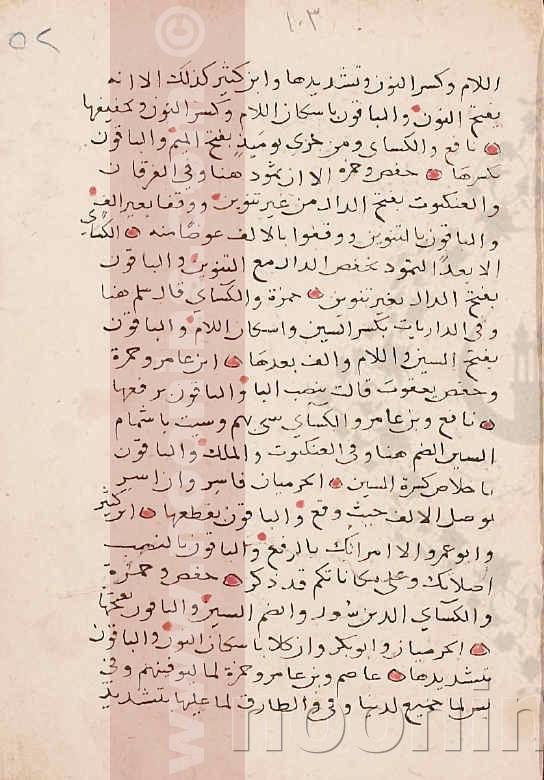 ١٠٣
٥٢
اللام وكسر النون وتشديدها وابن كثير كذلك الا انه
يفتح النون والباقون باسكان اللام وكسر النون وتخفيفها
نافع والكساى ومن خزى يوميذ بفتح الميم والباقون
بكسرها حفص وحمزه الا ان ثمود هنا وفي الفرقان
والعنكبوت بفتح الدال من غير تنوين ووقفا بغير الف
والباقون بالتنوين ووقفوا بالالف عوضا منه الكساى
الا بعدا لثمود بخفض الدال مع التنوين والباقون
بفتح الدال بغير تنوين حمزة والكساي قال سلم هنا
وفي الذاريات بكسر السين واسكان اللام والباقون
بفتح السين واللام والف بعدها ابن عامر وحمزة
وحفص يعقوب قالت بنصب البا والباقون برفعها
نافع وبن عامر والكساي سى بهم وسيت باشمام
السين الضم هنا وفى العنكبوت والملك والباقون
باخلاص كسرة السين الحرميان فاسر وان اسر
بوصل الالف حيث وقع والباقون بقطعها ابن كثير
وابو عمرو الا امراتك بالرفع والباقون بالنصب
اصلاتك وعلى مكاناتكم قد ذكر حفص وحمزة
والكساي الذين سعدوا بضم السين والباقون بفتحها
الحرميان وابو بكر وان كلا باسكان النون والباقون
بتشديدها عاصم وبن عامر وحمزة لما ليوفينهم وفي
يس لما جميع لدينا وفي والطارق لما عليها بتشديد
noonin